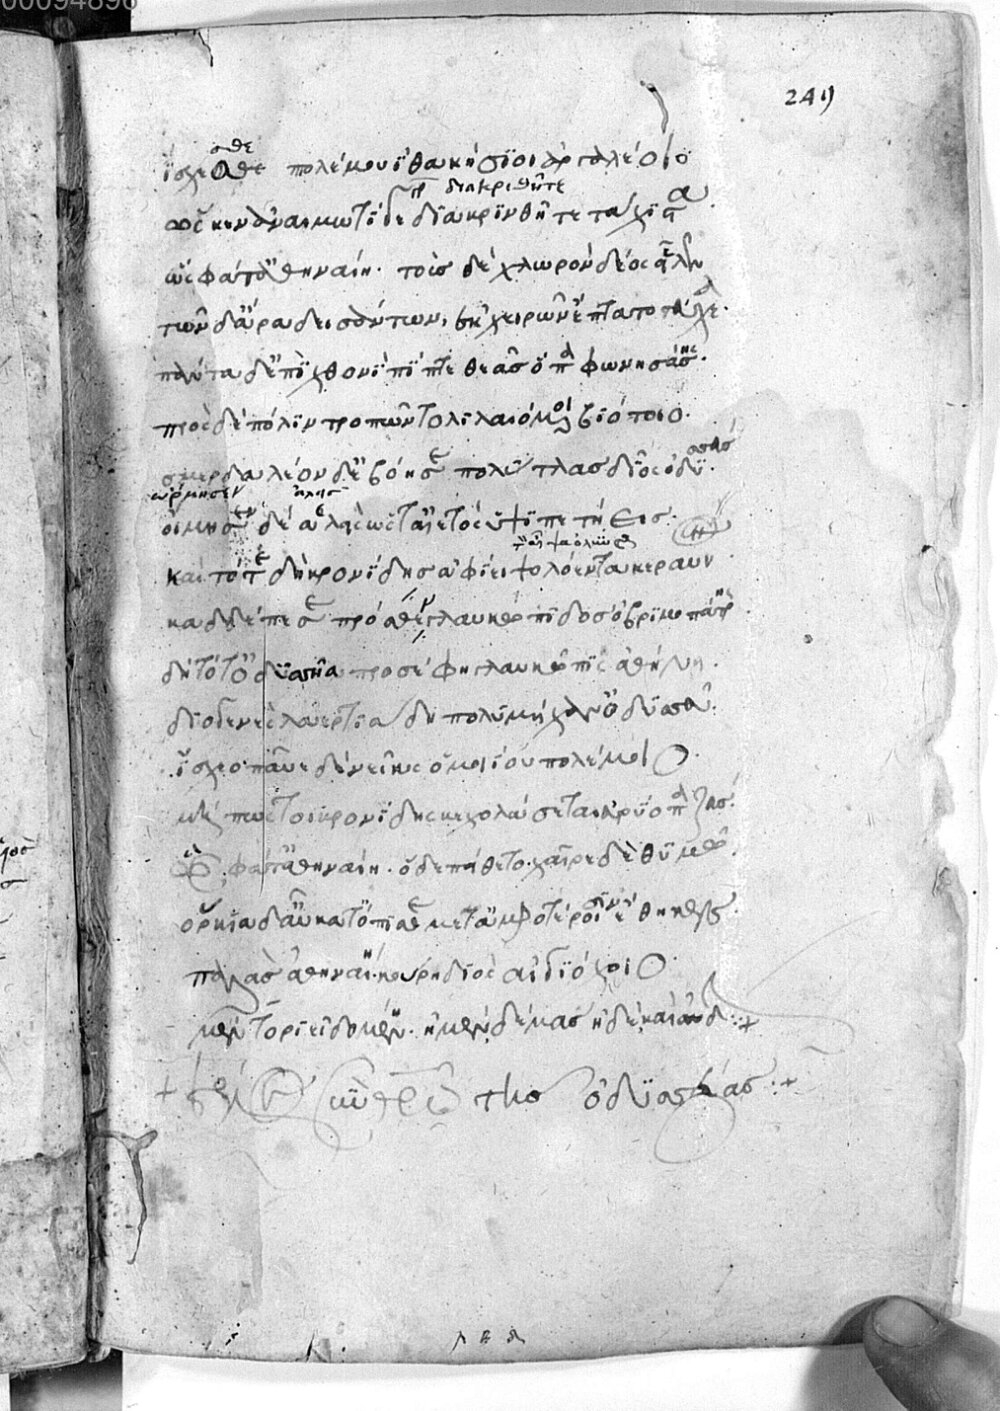 00094896
249
ἴσχεσθε πολέμου ἰθακήσιοι ἀργαλέοιο
σθε
διακριθῆτε
ὥς κεν ἀναιμωτί γε διακρινθῆτε τάχιστα
ὣς φάτ' ἀθηναίη· τοὺς δὲ χλωρὸν δέος εἷλεν
τῶν δ' ἄρα δεισάντων, ἐκ χειρῶν ἔπτατο τεύχεα·
πάντα δ' ἐπὶ χθονὶ πῖπτε θεᾶς ὄπα φωνησάσης·
πρὸς δὲ πόλιν τρωπῶντο λιλαιόμενοι βιότοιο·
σμερδαλέον δ' ἐβόησε πολύτλας δῖος ὀδυσσεύς·
ὥρμησεν
οἴμησεν δὲ ἀλεὶς ὥς τ' αἰετὸς ὑψιπετήεις·
καὶ τότε δὴ κρονίδης ἀφίει ψολόεντα κεραυν
κὰδ δ' ἔπεσε πρόσθε γλαυκώπιδος ὀβριμοπάτρης
δὴ τότ' ὀδυσσῆα προσέφη γλαυκῶπις ἀθήνη·
διογενὲς λαερτιάδη πολυμήχαν' ὀδυσσεῦ·
ἴσχεο παῦε δὲ νεῖκος ὁμοιίου πολέμοιο·
μή πως τοι κρονίδης κεχολώσεται εὐρύοπα ζεύς·
ὣς φάτ' ἀθηναίη· ὁ δ' ἐπείθετο χαῖρε δὲ θυμῷ·
ὅρκια δ' αὖ κατόπισθε μετ' ἀμφοτέροισιν ἔθηκε
παλλὰς ἀθηναίη κούρη διὸς αἰγιόχοιο·
μέντορι εἰδομένη· ἠμὲν δέμας ἠδὲ καὶ αὐδήν:+
+ τέλος τῆς ὀδυσσείας +